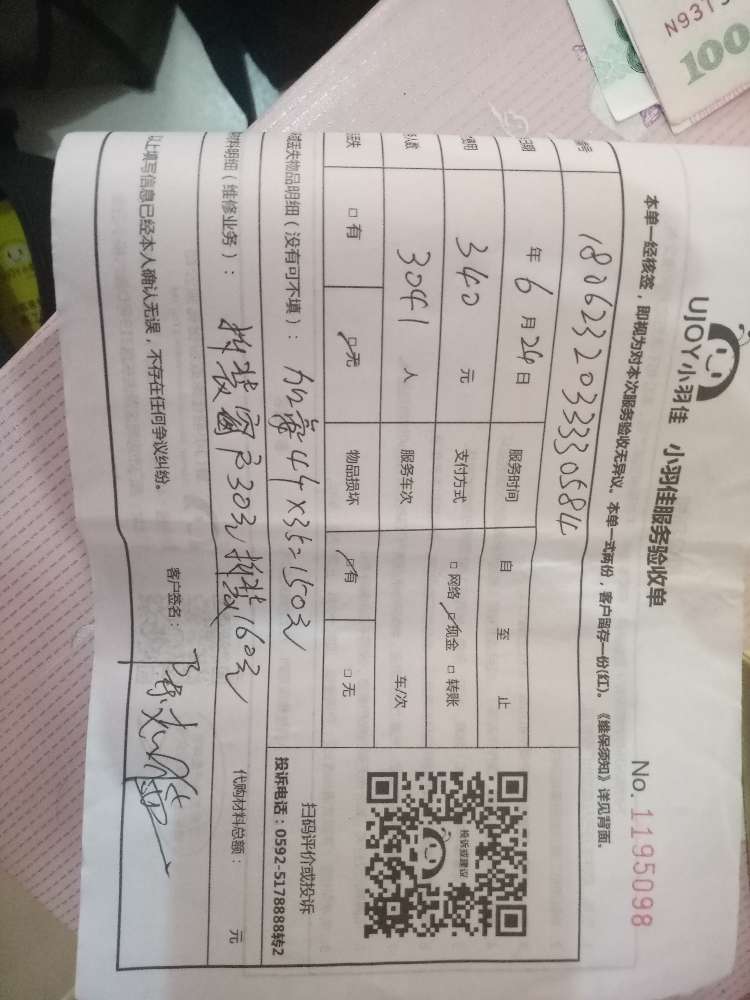 N9373
100
UJOY小羽佳 小羽佳服务验收单
No. 1195098
本单一经核签，即视为对本次服务验收无异议。本单一式两份，客户留存一份(红)。《维保须知》详见背面。
编号 180623203330584
日期 年 6 月 24 日 服务时间 自 至 止
费用 340 元 支付方式 □ 网络 ☑ 现金 □ 转账
人数 3041 人 服务车次 车/次
丢失 □ 有 ☑ 无 物品损坏 ☑ 有 □ 无
投诉或建议
扫码评价或投诉
投诉电话：0592-5178888转2
丢失物品明细（没有可不填）： 加 44×35=150元
材料明细（维修业务）： 拆装窗户30元 拆装160元
代购材料总额： 元
以上填写信息已经本人确认无误，不存在任何争议纠纷。 客户签名：